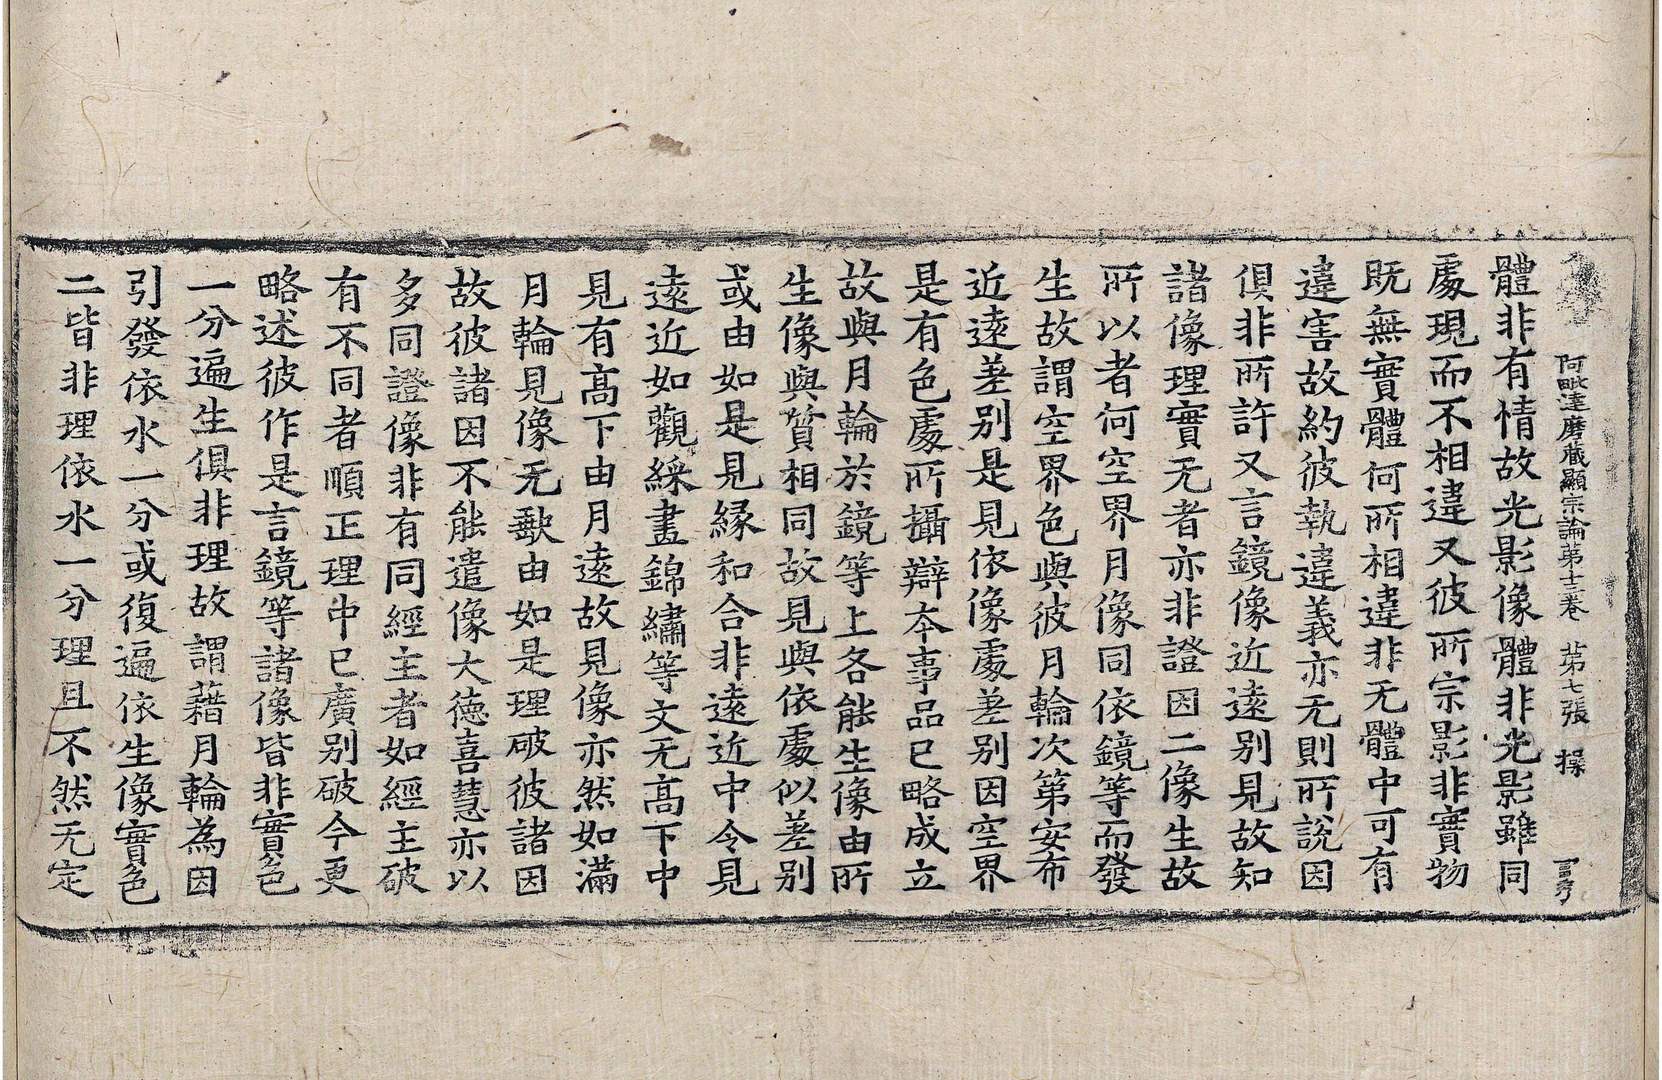 阿毗達磨藏顯宗論第十三卷 第七張 操
體非有情故光影像體非光影雖同
處現而不相違又彼所宗影非實物
既無實體何所相違非无體中可有
違害故約彼執違義亦无則所說因
俱非所許又言鏡像近遠別見故知
諸像理實无者亦非證因二像生故
所以者何空界月像同依鏡等而發
生故謂空界色與彼月輪次第安布
近遠差别是見依像處差别因空界
是有色處所攝辯本事品已略成立
故與月輪於鏡等上各能生像由所
生像與質相同故見與依處似差别
或由如是見緣和合非遠近中令見
遠近如觀綵畫錦繡等文无高下中
見有高下由月遠故見像亦然如滿
月輪見像无虧由如是理破彼諸因
故彼諸因不能遣像大德喜慧亦以
多同證像非有同經主者如經主破
有不同者順正理中已廣别破今更
略述彼作是言鏡等諸像皆非實色
一分遍生俱非理故謂藉月輪為因
引發依水一分或復遍依生像實色
二皆非理依水一分理且不然无定